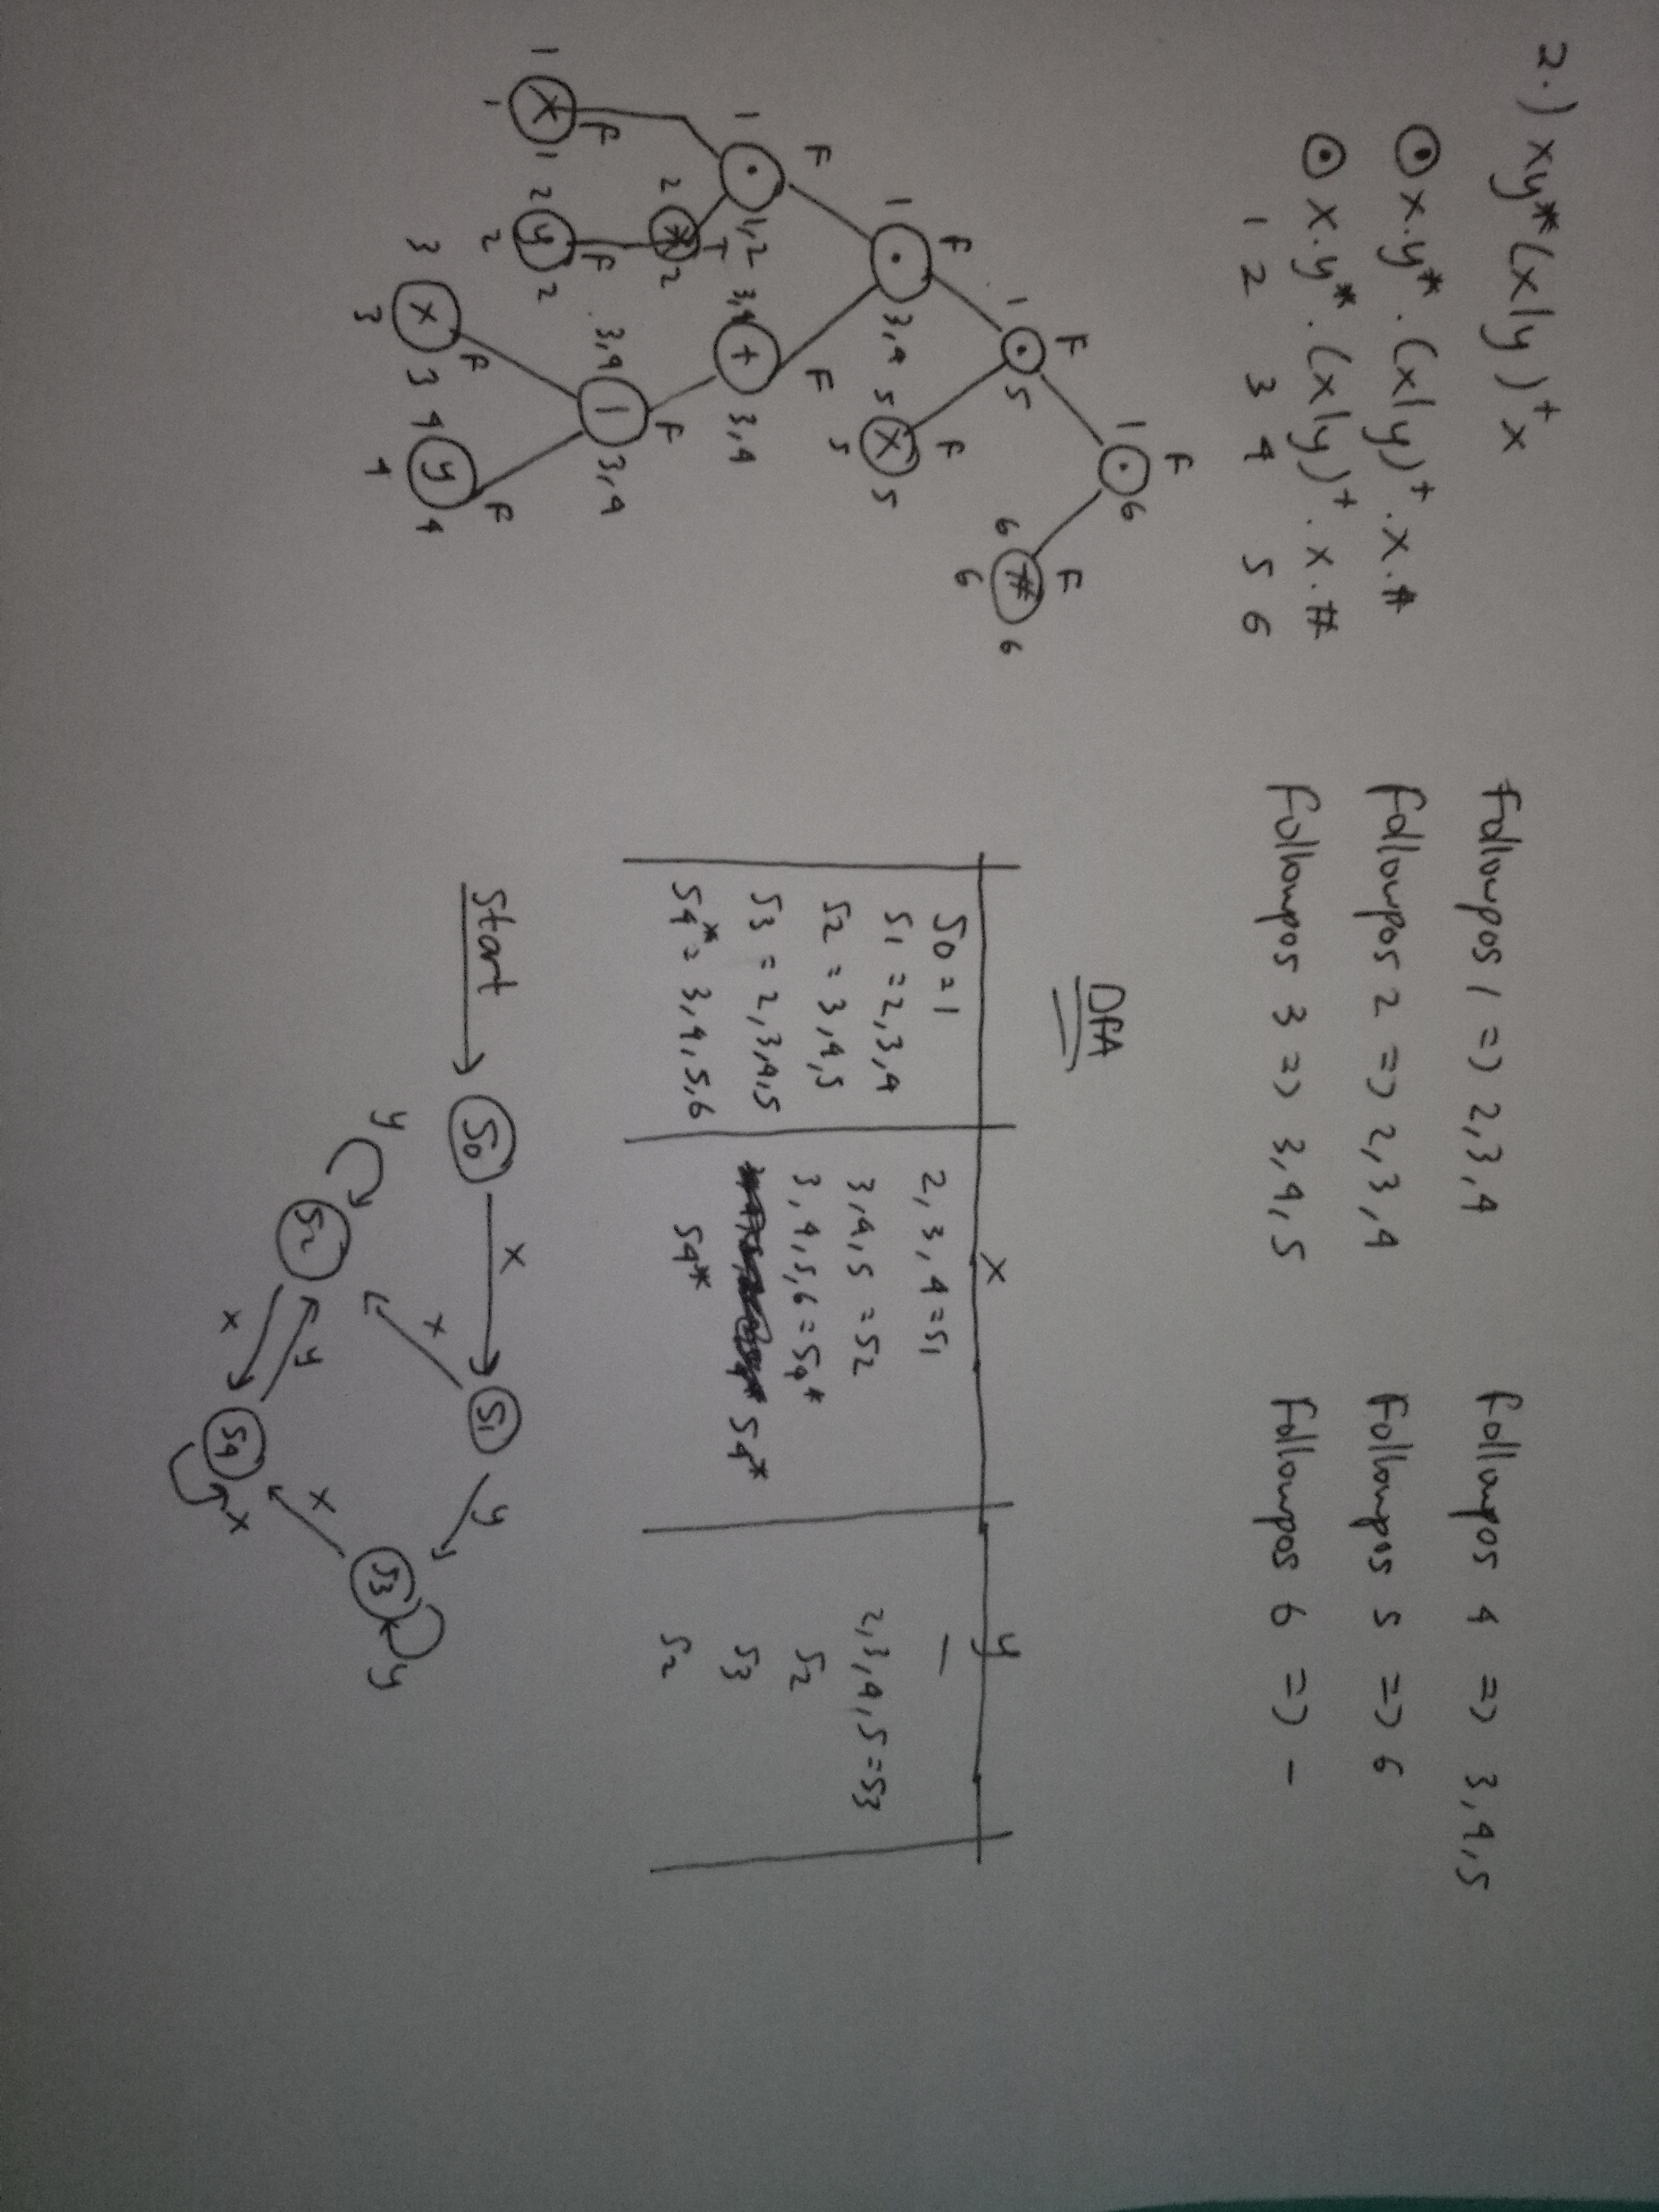 2.) xy*(x|y)⁺x
⊙ x.y*.(x|y)⁺.x.#
⊙ x.y*.(x|y)⁺.x.#
1 2 3 4 5 6
F
1 ⊙ 6
F
1 ⊙ 5
6 # F 6
6
F
1 ⊙ 3,4
5 X F 5
5
F
1 ⊙ 1,2
3,4 + F 3,4
2 * T 2
3,4 | F 3,4
1 X F 1
1
2 y F 2
2
3 X F 3
3
4 y F 4
4
Followpos 1 => 2,3,4
Followpos 2 => 2,3,4
Followpos 3 => 3,4,5
Followpos 4 => 3,4,5
Followpos 5 => 6
Followpos 6 => -
DFA
x y
S0 = 1 2,3,4 = S1 -
S1 = 2,3,4 3,4,5 = S2 2,3,4,5 = S3
S2 = 3,4,5 3,4,5,6 = S4* S2
S3 = 2,3,4,5 S4* S3
S4* = 3,4,5,6 S4* S2
Start S0 x S1
x y
y S2 S3 y
x y x
S4 x